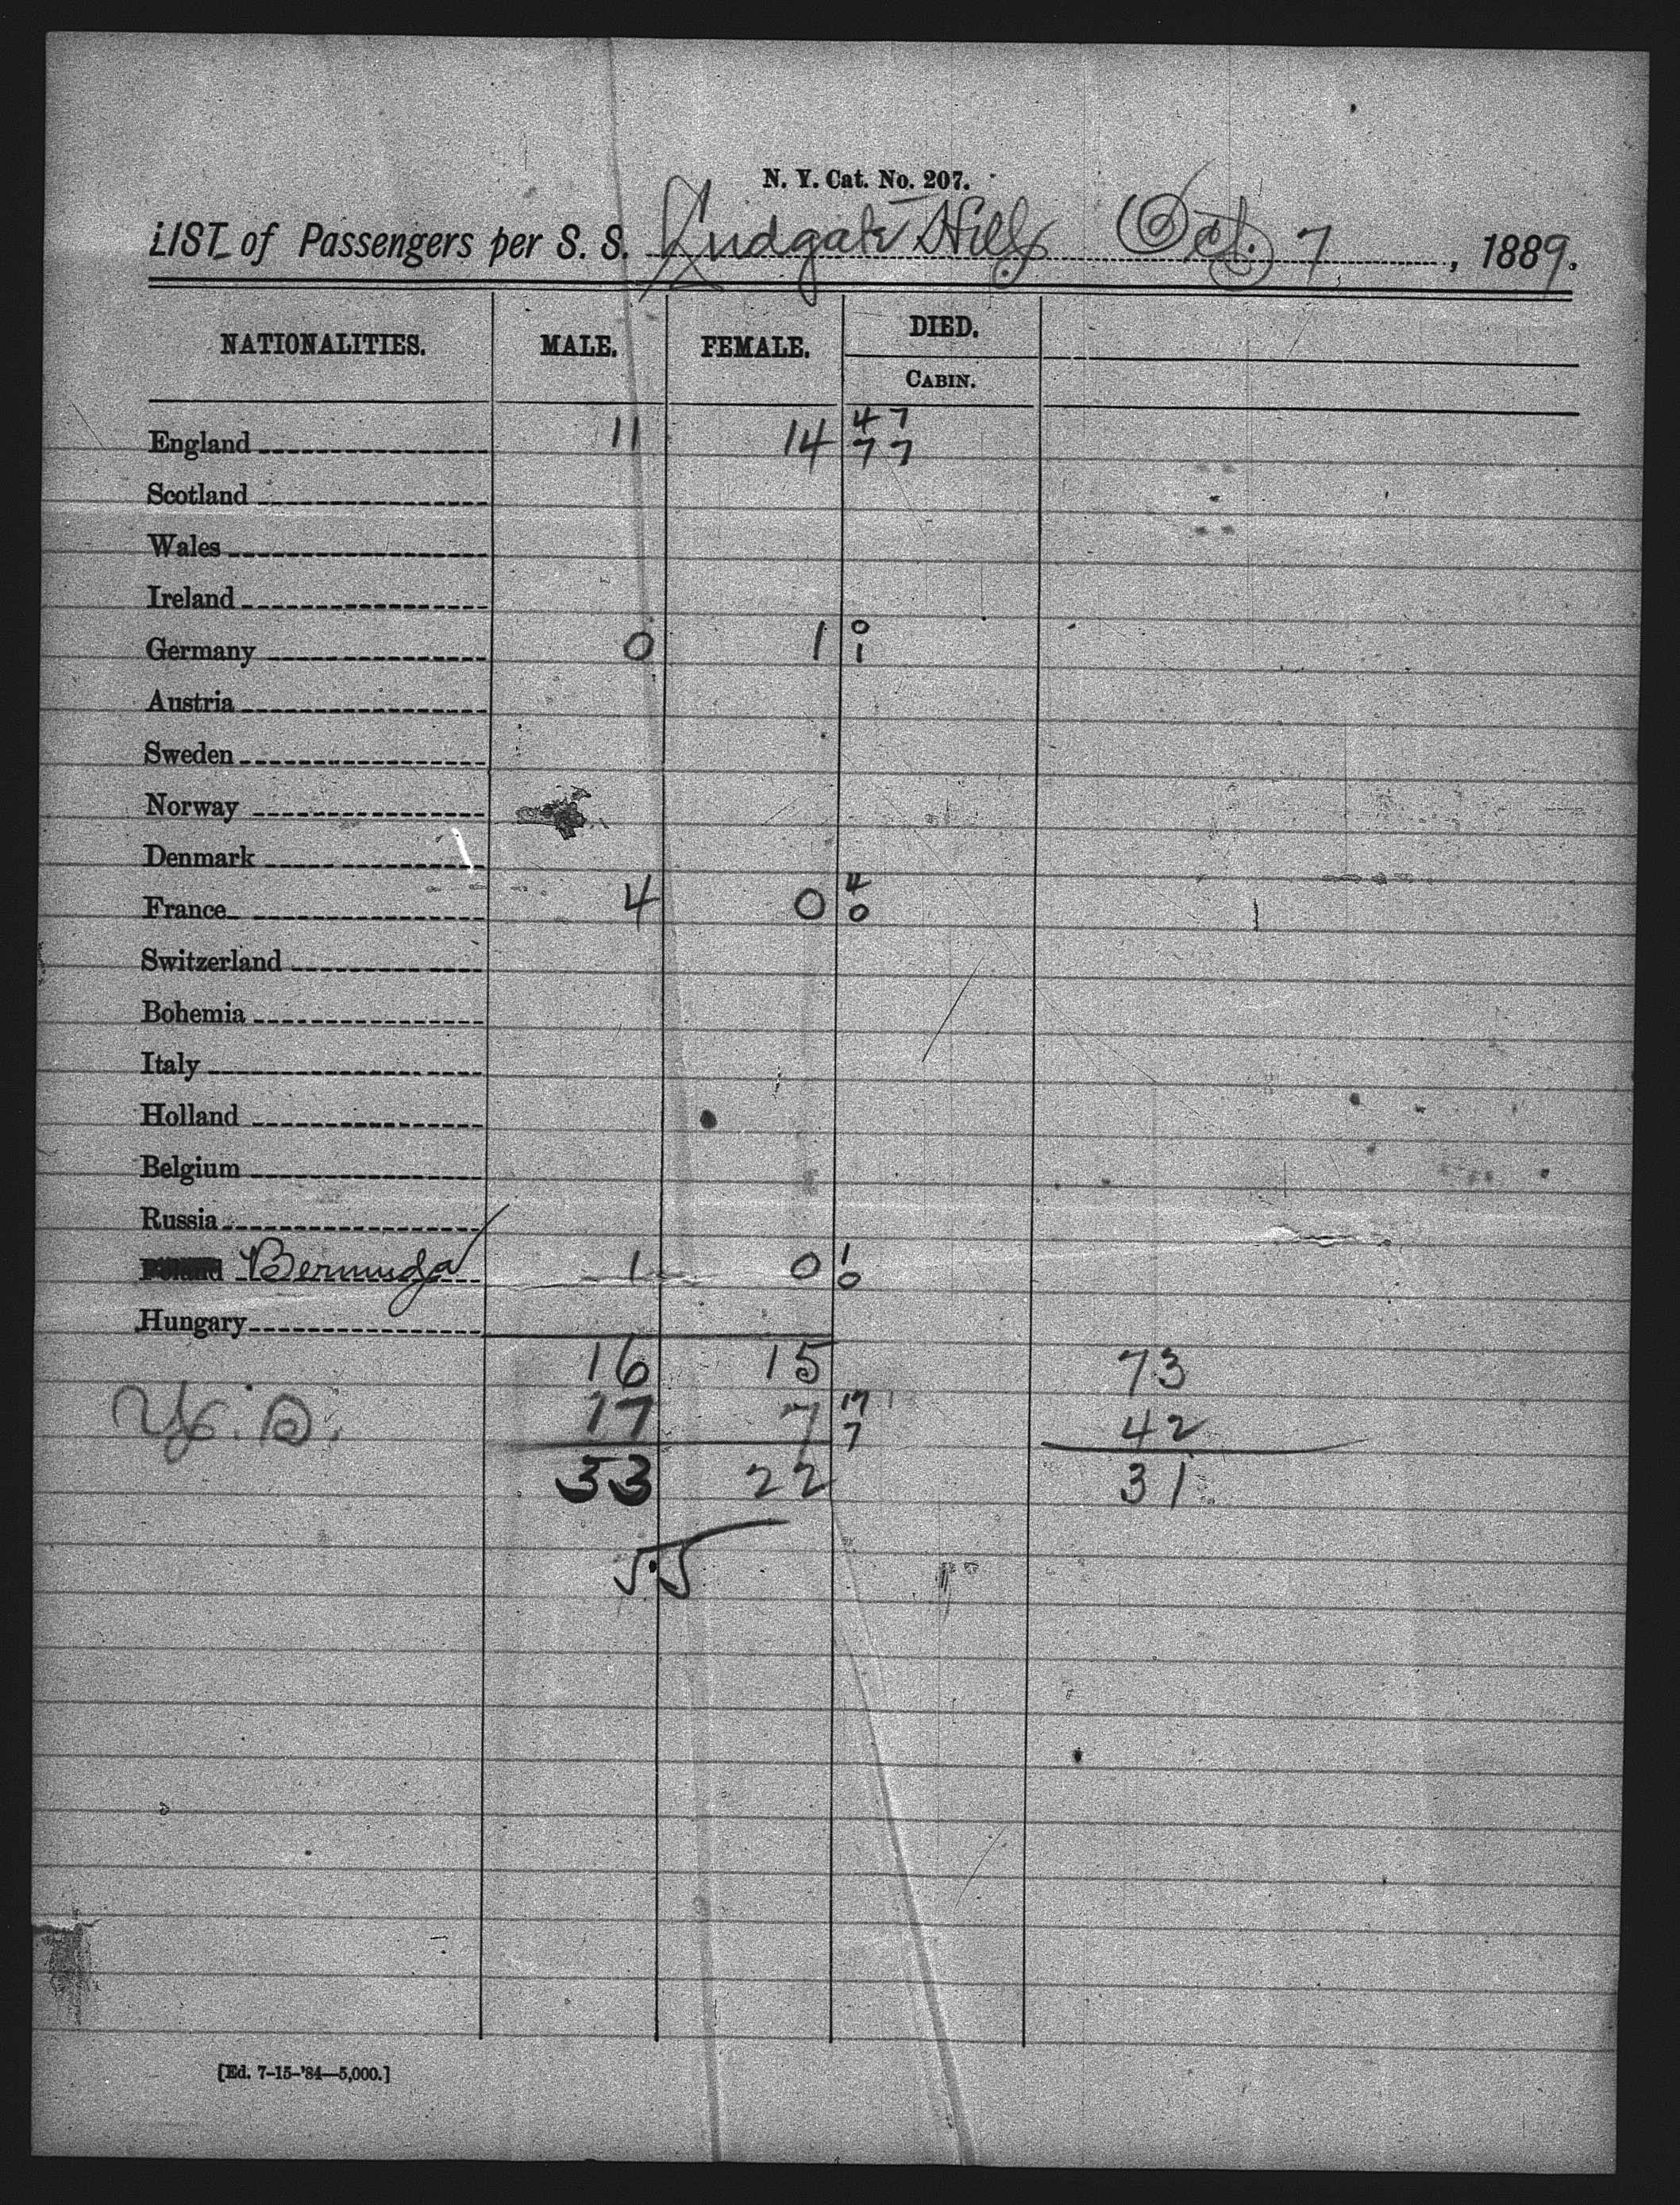 N. Y. Cat. No. 207.
LIST of Passengers per S. S. Ludgate Hill Oct. 7, 1889.
NATIONALITIES. MALE. FEMALE. DIED.
CABIN.
4 7
England 11 14 7 7
Scotland
Wales
Ireland
0
Germany 0 1 1
Austria
Sweden
Norway
Denmark
4
France 4 0 0
Switzerland
Bohemia
Italy
Holland
Belgium
Russia
1
Poland Bermuda 1 0 0
Hungary
16 15 73
17
U.S. 17 7 7 42
33 22 31
55
[Ed. 7-15-'84—5,000.]